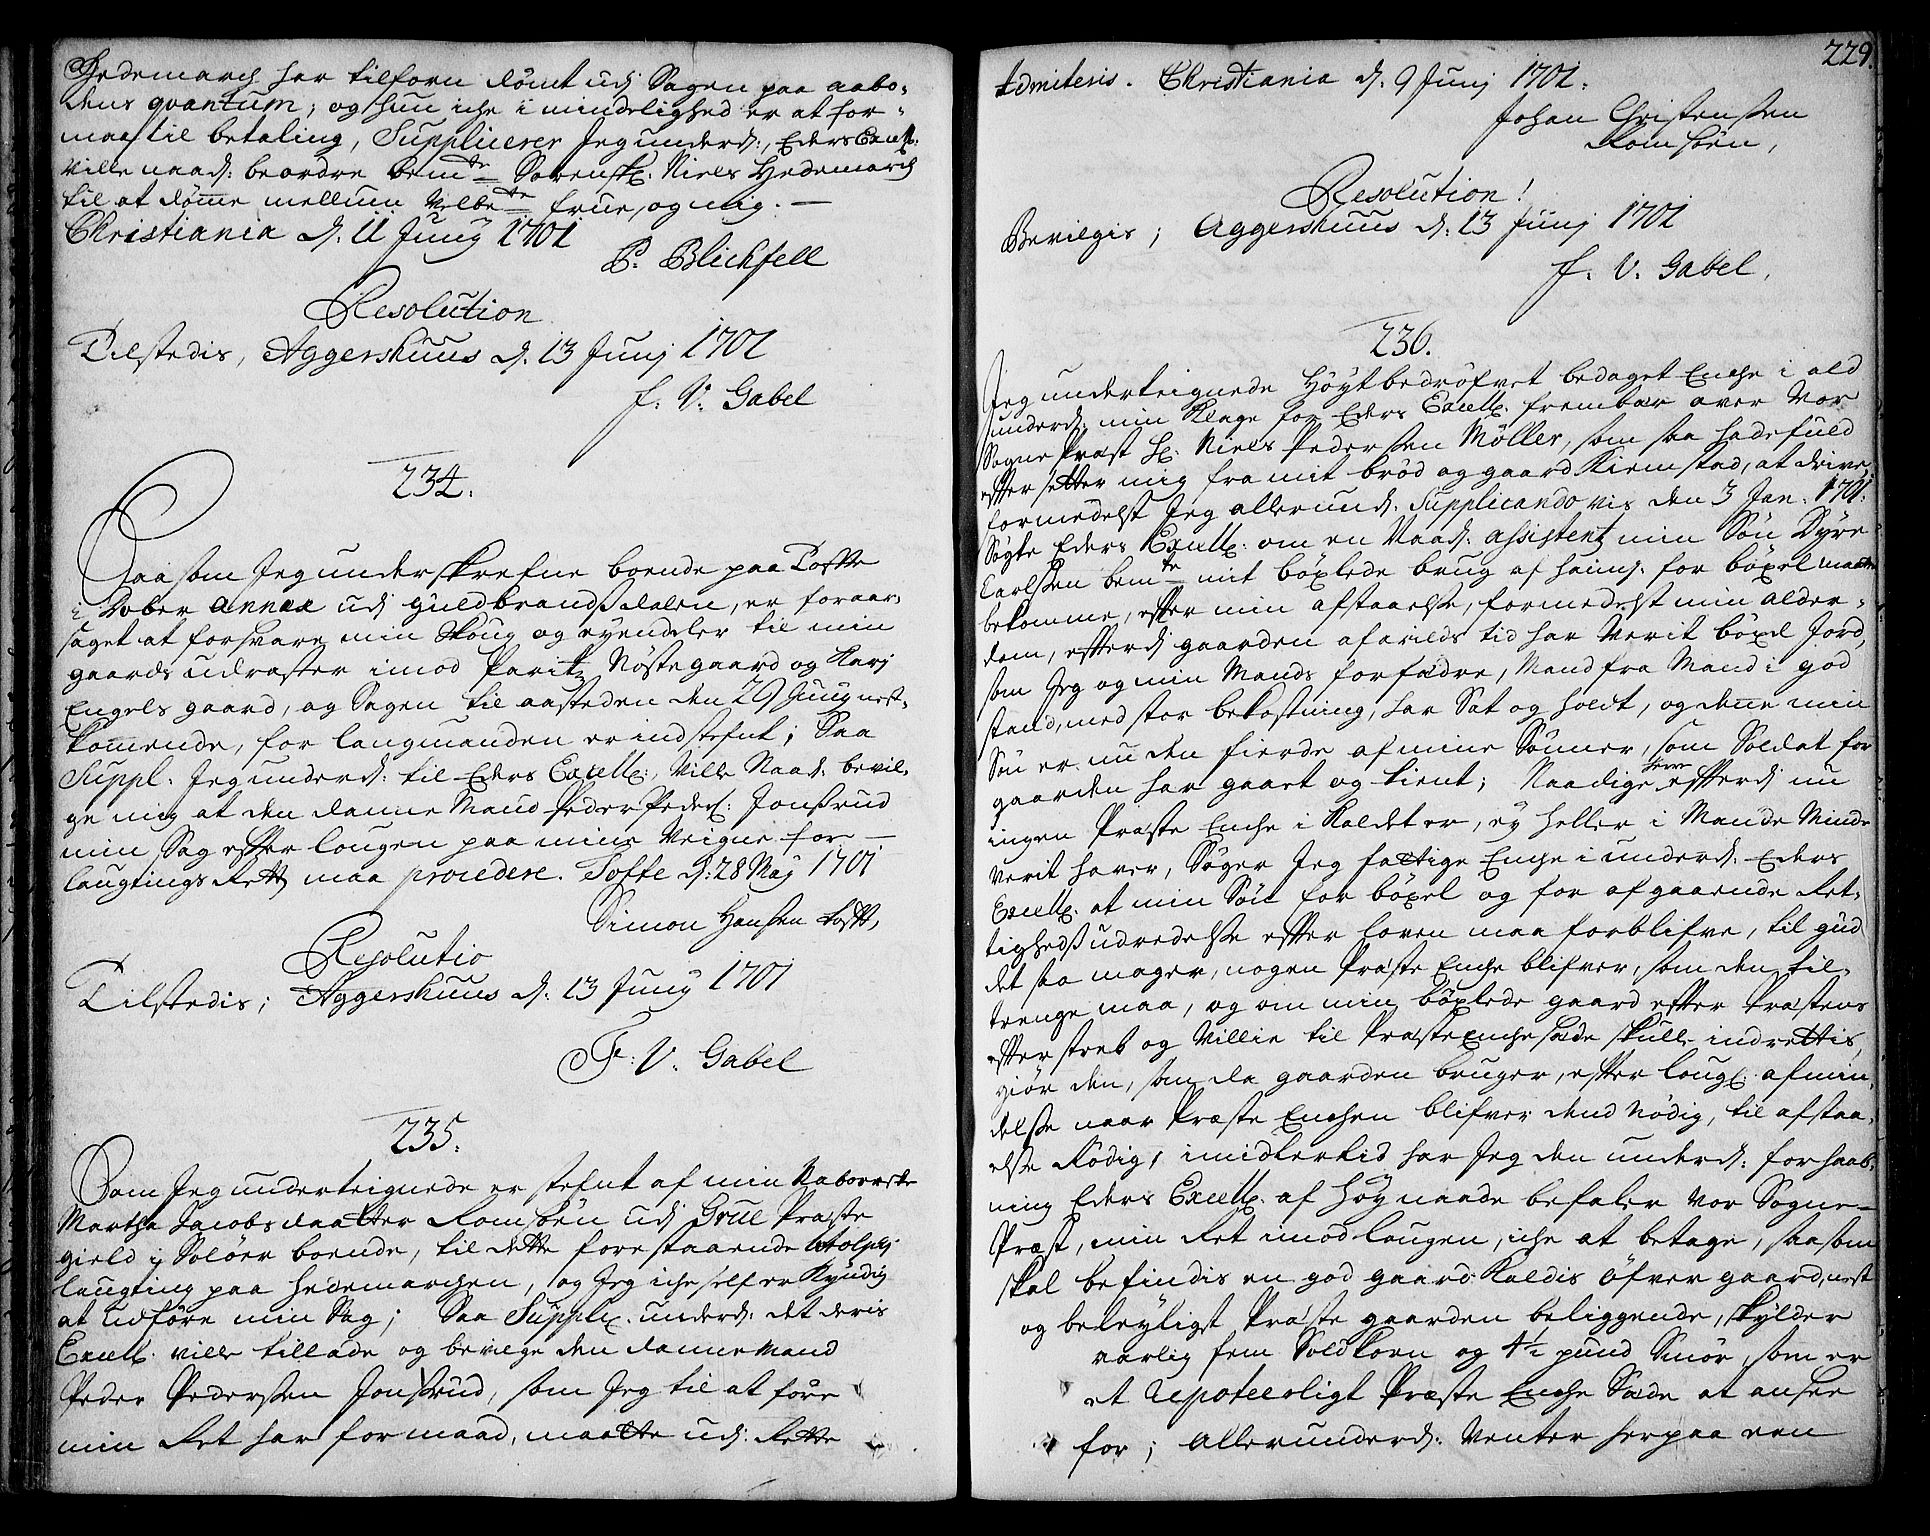 Hedemarch har tilforn dömt udj Sagen paa aabo-
dens qvantum; og hun iche i mindelighed er at for-
maa til betaling, Supplicerer Jeg underd:, Eders Excell:
ville naad: beordre bemte Sorensk: Niels Hedemarch
til at dömme mellum Velbte frue, og mig. —
Christiania d. 11 Junij 1701
P. Blichfeld
Resolution
Tilstedis, Aggershuus d. 13 Junj 1701
f. V. Gabel
234.
Saasom Jeg underskrefne boende paa Tofte
i Dober annex udj Guldbrandsdalen, er foraar-
saget at forsvare min Skoug og eyendeler til min
gaards udraster imod Paritz Nöstegaard og Karj
Engels gaard, og Sagen til aasteden den 29 Junij nest-
kommende, for laugmanden er indstefnt; Saa
Suppl: Jeg underd: til Eders Excell:, Ville Naad: bevil-
ge mig at den danne Mand Peder Peders: Jonsrud
min Sag efter lougen paa mine Veigne for —
laugtings Rett maa procedere. Tofte d: 28 Maj 1701
Simon Hansen Tofte,
Resolutio
Tilstedis; Aggershuus d. 13 Junij 1701
F: V. Gabel
235.
Som Jeg underteignede er stefnt af min Naboerske
Martha Jacobsdaatter Romsöen udj Grue Præste
gield i Solöer boende, til dette forestaaende
laugting paa Hedemarchen, og Jeg iche self er Kyndig
at udföre min Sag; Saa Supplic: underd: det deris
Excell: ville tillade og bevilge den danne Mand
Peder Pedersen Jonsrud, som Jeg til at före
min Ret har formaad, maatte udj Rette
229.
Admiteris. Christiania d. 9 Junj 1701.
Johan Christensen
Romsöen,
Resolution!
Bevilgis; Aggershuus d. 13 Junj 1701
f. V. Gabel,
236.
Jeg underteignede Höyt bedröfvet bedaget Enche i ald
underd: min Klage for Eders Excell: frembær over Vor
Sogne Præst Hr: Niels Pedersen Möller, som saa hadefuld
efter setter mig fra mit bröd og gaard Kiemstad, at drive,
formedelst Jeg allerund: Supplicando vis den 3 Jan: 1701
Sögte Eders Excell: om en Naad: assistentz min Sön Dyre
Carlsen bemte mit böxlede brug af haim: for böxel maatte
bekomme, efter min afstaaelse, formedelst min alder-
dom, efterd: gaarden af arilds tid har Verit böxel Jord,
som Jeg og min Mands forfædre, Mand fra Mand i god
stand, med stor bekostning, har Sat og holdt, og denne min
Sön er nu den fierde af mine Sönner, som Soldat for
gaarden har gaart og tient; Naadige Herre efterd: nu
ingen Præste Enche i Kaldet er, ey heller i Mands Minde
Verit haver, Söger Jeg fattige Enche i underd: Eders
Excell: at min Sön for böxel og for afgaaende Ret-
tigheds udredelse efter loven maa forblifve, til gud
det saa mager, nogen Præste Enche blifver, som den til-
trenge maa, og om min böxlede gaard efter Præstens
efterstreb og Villie til Præste Enchesæde skulle indrettis,
giör den, som da gaarden bruger, efter loug: afmin-
delse naar Præste Enchen blifver dend nödig, til afstaa-
else Rödig, imidlertid har Jeg den underd: forhaab-
ning Eders Excell: af höy naade befaler Vor Sogne-
Præst, min Ret imod lougen, iche at betage, saasom
skal befindis en god gaard Kaldis öfver gaard, nest
og beleyligst Præste gaarden beliggende, skylder
aarlig fem Soldkorn og 4½ pund Smör, som er
et Upoteerligt Præste Enche Sæde at ansee
for; Allerunderd: Venter herpaa een